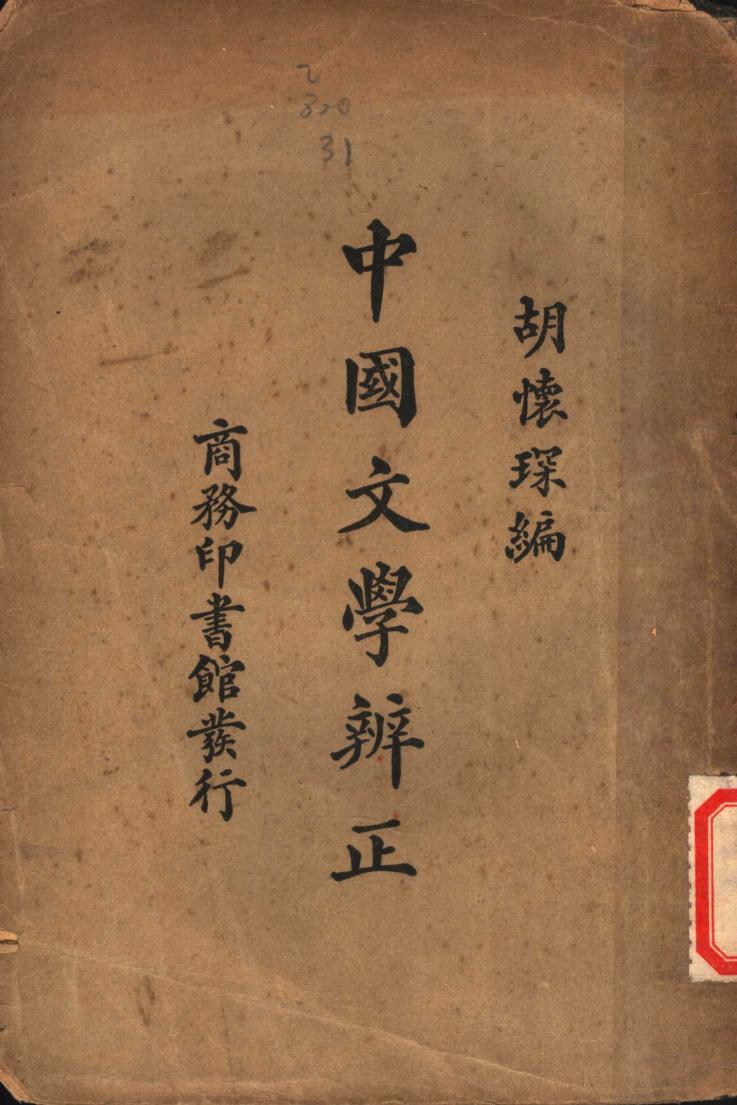 胡懷琛編
中國文學辨正
商務印書館發行
820
31